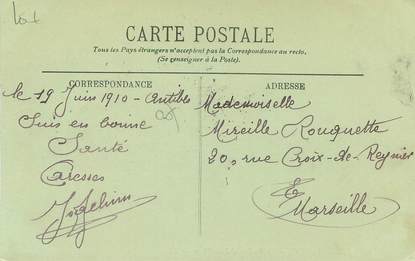 CARTE POSTALE
Tous les Pays étrangers n'acceptent pas la Correspondance au recto.
(Se renseigner à la Poste).
CORRESPONDANCE
le 19 Juin 1910 - Antibes
Suis en bonne
Santé
Caresses
ADRESSE
Mademoiselle
Mireille Rouquette
20, rue Croix-de-Reynier
Marseille